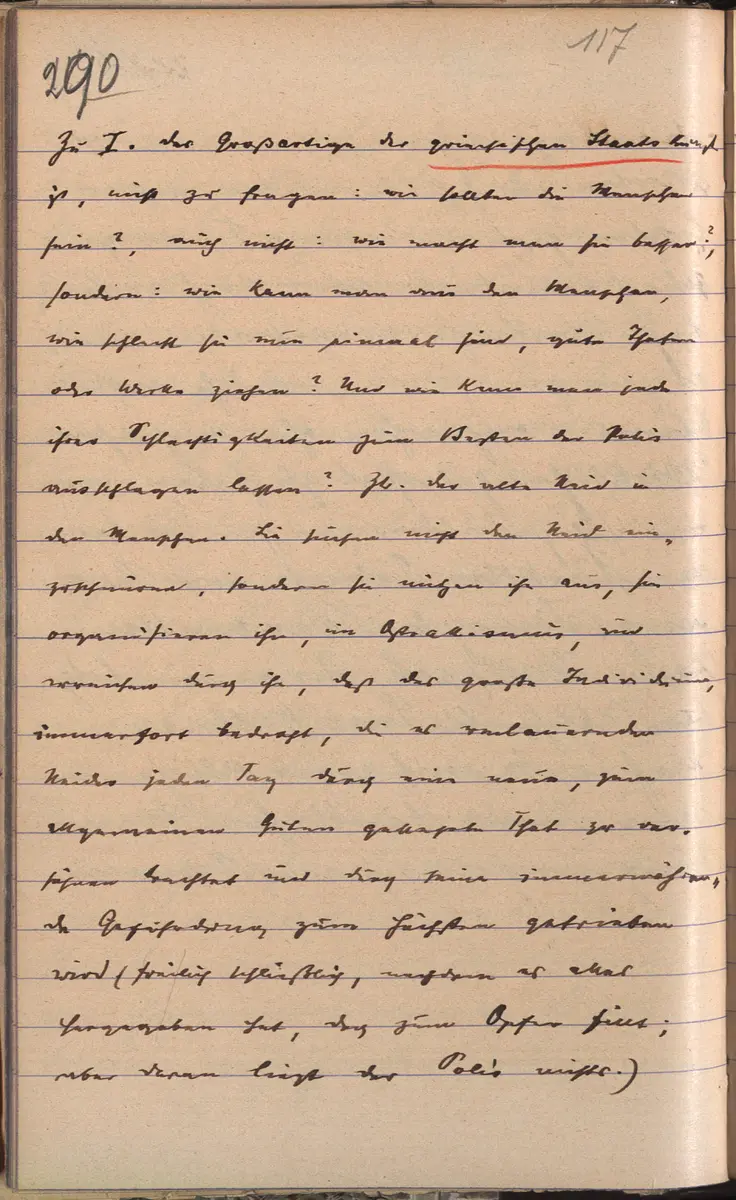 290
117
Zu I. das Großartige der griechischen Staatskunst
ist, nicht zu fragen: wie sollten die Menschen
sein?, auch nicht: wie macht man sie besser?,
sondern: wie kann man aus den Menschen,
wie schlecht sie nun einmal sind, gute Thaten
oder Werke ziehen? Und wie kann man jede
ihrer Schlechtigkeiten zum Besten der Polis
ausschlagen lassen? Zb. der alte Neid in
den Menschen. Sie suchen nicht den Neid ein-
zuschnüren, sondern sie nützen ihn aus, sie
organisieren ihn, im Ostrakismus, und
erreichen durch ihn, daß das große Individuum,
immerfort bedroht, die es
Neides jeden Tag durch eine neue, zum
allgemeinen Guten gethane That zu ver-
söhnen trachtet und durch seine immerwähren-
de Gefährdung zum Höchsten getrieben
wird (freilich schließlich, nachdem es alles
hergegeben hat, doch zum Opfer fällt;
aber daran liegt der Polis nichts.)